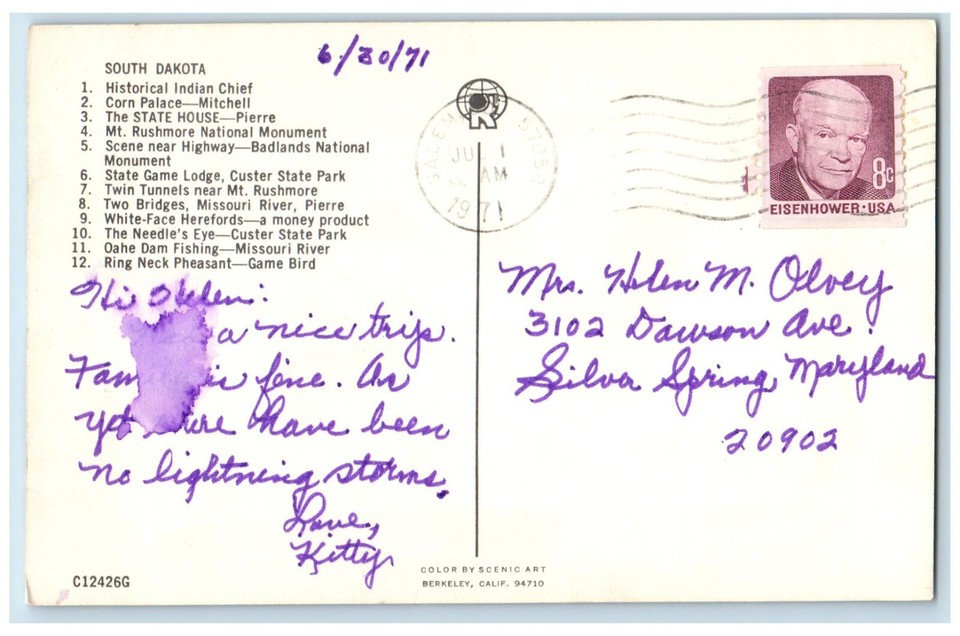 6/30/71
SOUTH DAKOTA
1. Historical Indian Chief
2. Corn Palace—Mitchell
3. The STATE HOUSE—Pierre
4. Mt. Rushmore National Monument
5. Scene near Highway—Badlands National
Monument
6. State Game Lodge, Custer State Park
7. Twin Tunnels near Mt. Rushmore
8. Two Bridges, Missouri River, Pierre
9. White-Face Herefords—a money product
10. The Needle's Eye—Custer State Park
11. Oahe Dam Fishing—Missouri River
12. Ring Neck Pheasant—Game Bird
Hi Helen:
a nice trip.
is fine. As
yet there have been
no lightning storms.
Love,
Kitty
C12426G
R
SALEM 57058
JUL 1
AM
1971
8c
EISENHOWER·USA
Mrs. Helen M. Olvey
3102 Dawson Ave.
Silver Spring, Maryland
20902
COLOR BY SCENIC ART
BERKELEY, CALIF. 94710